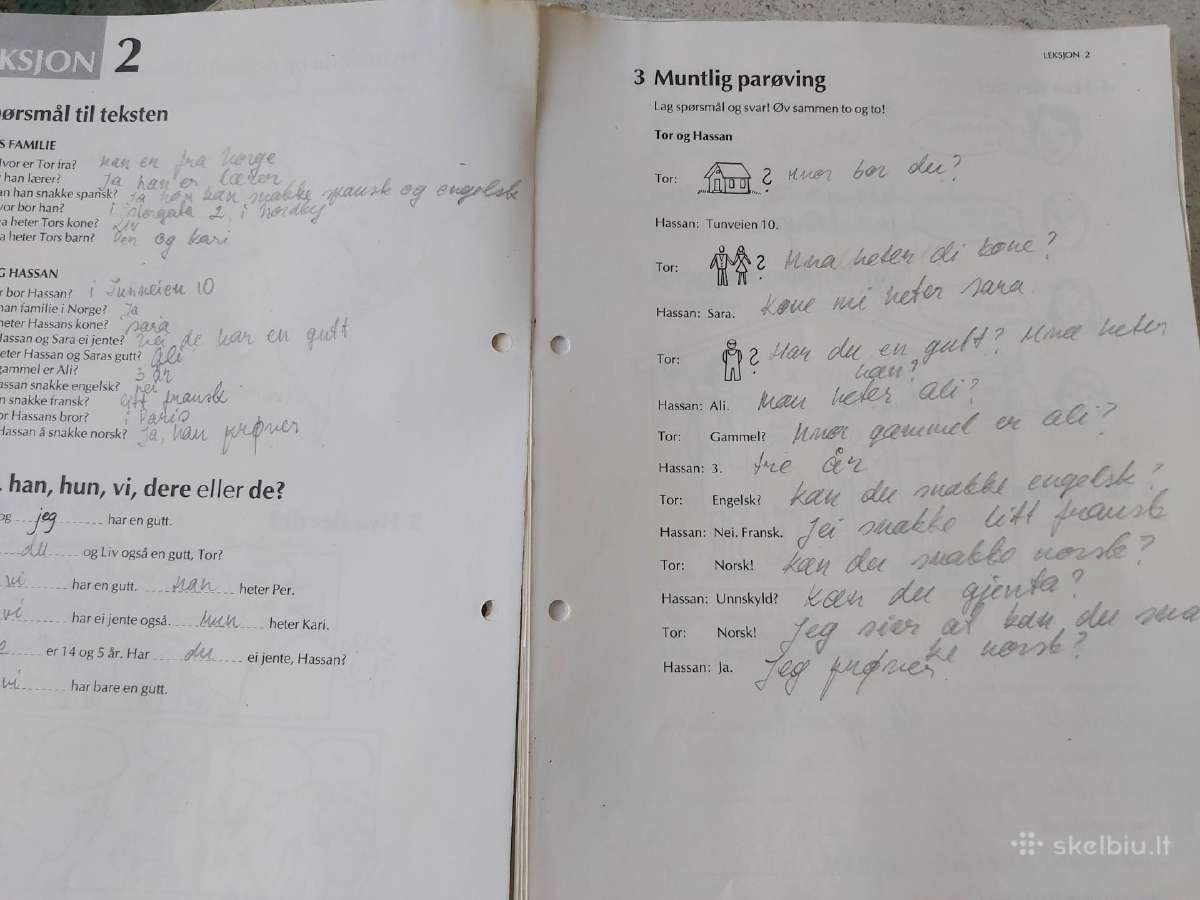 KSJON 2
ørsmål til teksten
S FAMILIE
vor er Tor fra? han en fra Norge
han lærer? Ja han er lærer
an han snakke spansk? Ja han kan snakke spansk og engelsk
vor bor han? i Storgata 2 i Nordby
a heter Tors kone? Liv
a heter Tors barn? og kari
G HASSAN
r bor Hassan? i Tunneien 10
han familie i Norge? Ja
heter Hassans kone? sara
Hassan og Sara ei jente? nei de har en gutt
eter Hassan og Saras gutt? ali
gammel er Ali? 3 år
assan snakke engelsk? nei
n snakke fransk? litt franski
or Hassans bror? i Paris
Hassan å snakke norsk? Ja, han prøver
, han, hun, vi, dere eller de?
og jeg har en gutt.
du og Liv også en gutt, Tor?
vi har en gutt. han heter Per.
vi har ei jente også. hun heter Kari.
er 14 og 5 år. Har du ei jente, Hassan?
vi har bare en gutt.
LEKSJON 2
3 Muntlig parøving
Lag spørsmål og svar! Øv sammen to og to!
Tor og Hassan
Tor: ? Hvor bor du?
Hassan: Tunveien 10.
Tor: ? Hva heter di kone?
Hassan: Sara. Kone mi heter sara
Tor: ? Har du en gutt? Hva heter
han?
Hassan: Ali. Han heter ali?
Tor: Gammel? Hvor gammel er ali?
Hassan: 3. tre år
Tor: Engelsk? kan du snakke engelsk?
Hassan: Nei. Fransk. Jei snakke litt fransk
Tor: Norsk! kan du snakke norsk?
Hassan: Unnskyld? kan du gjenta?
Tor: Norsk! Jeg sier at kan du sna
ke norsk?
Hassan: Ja. Jeg prøver
skelbiu.lt